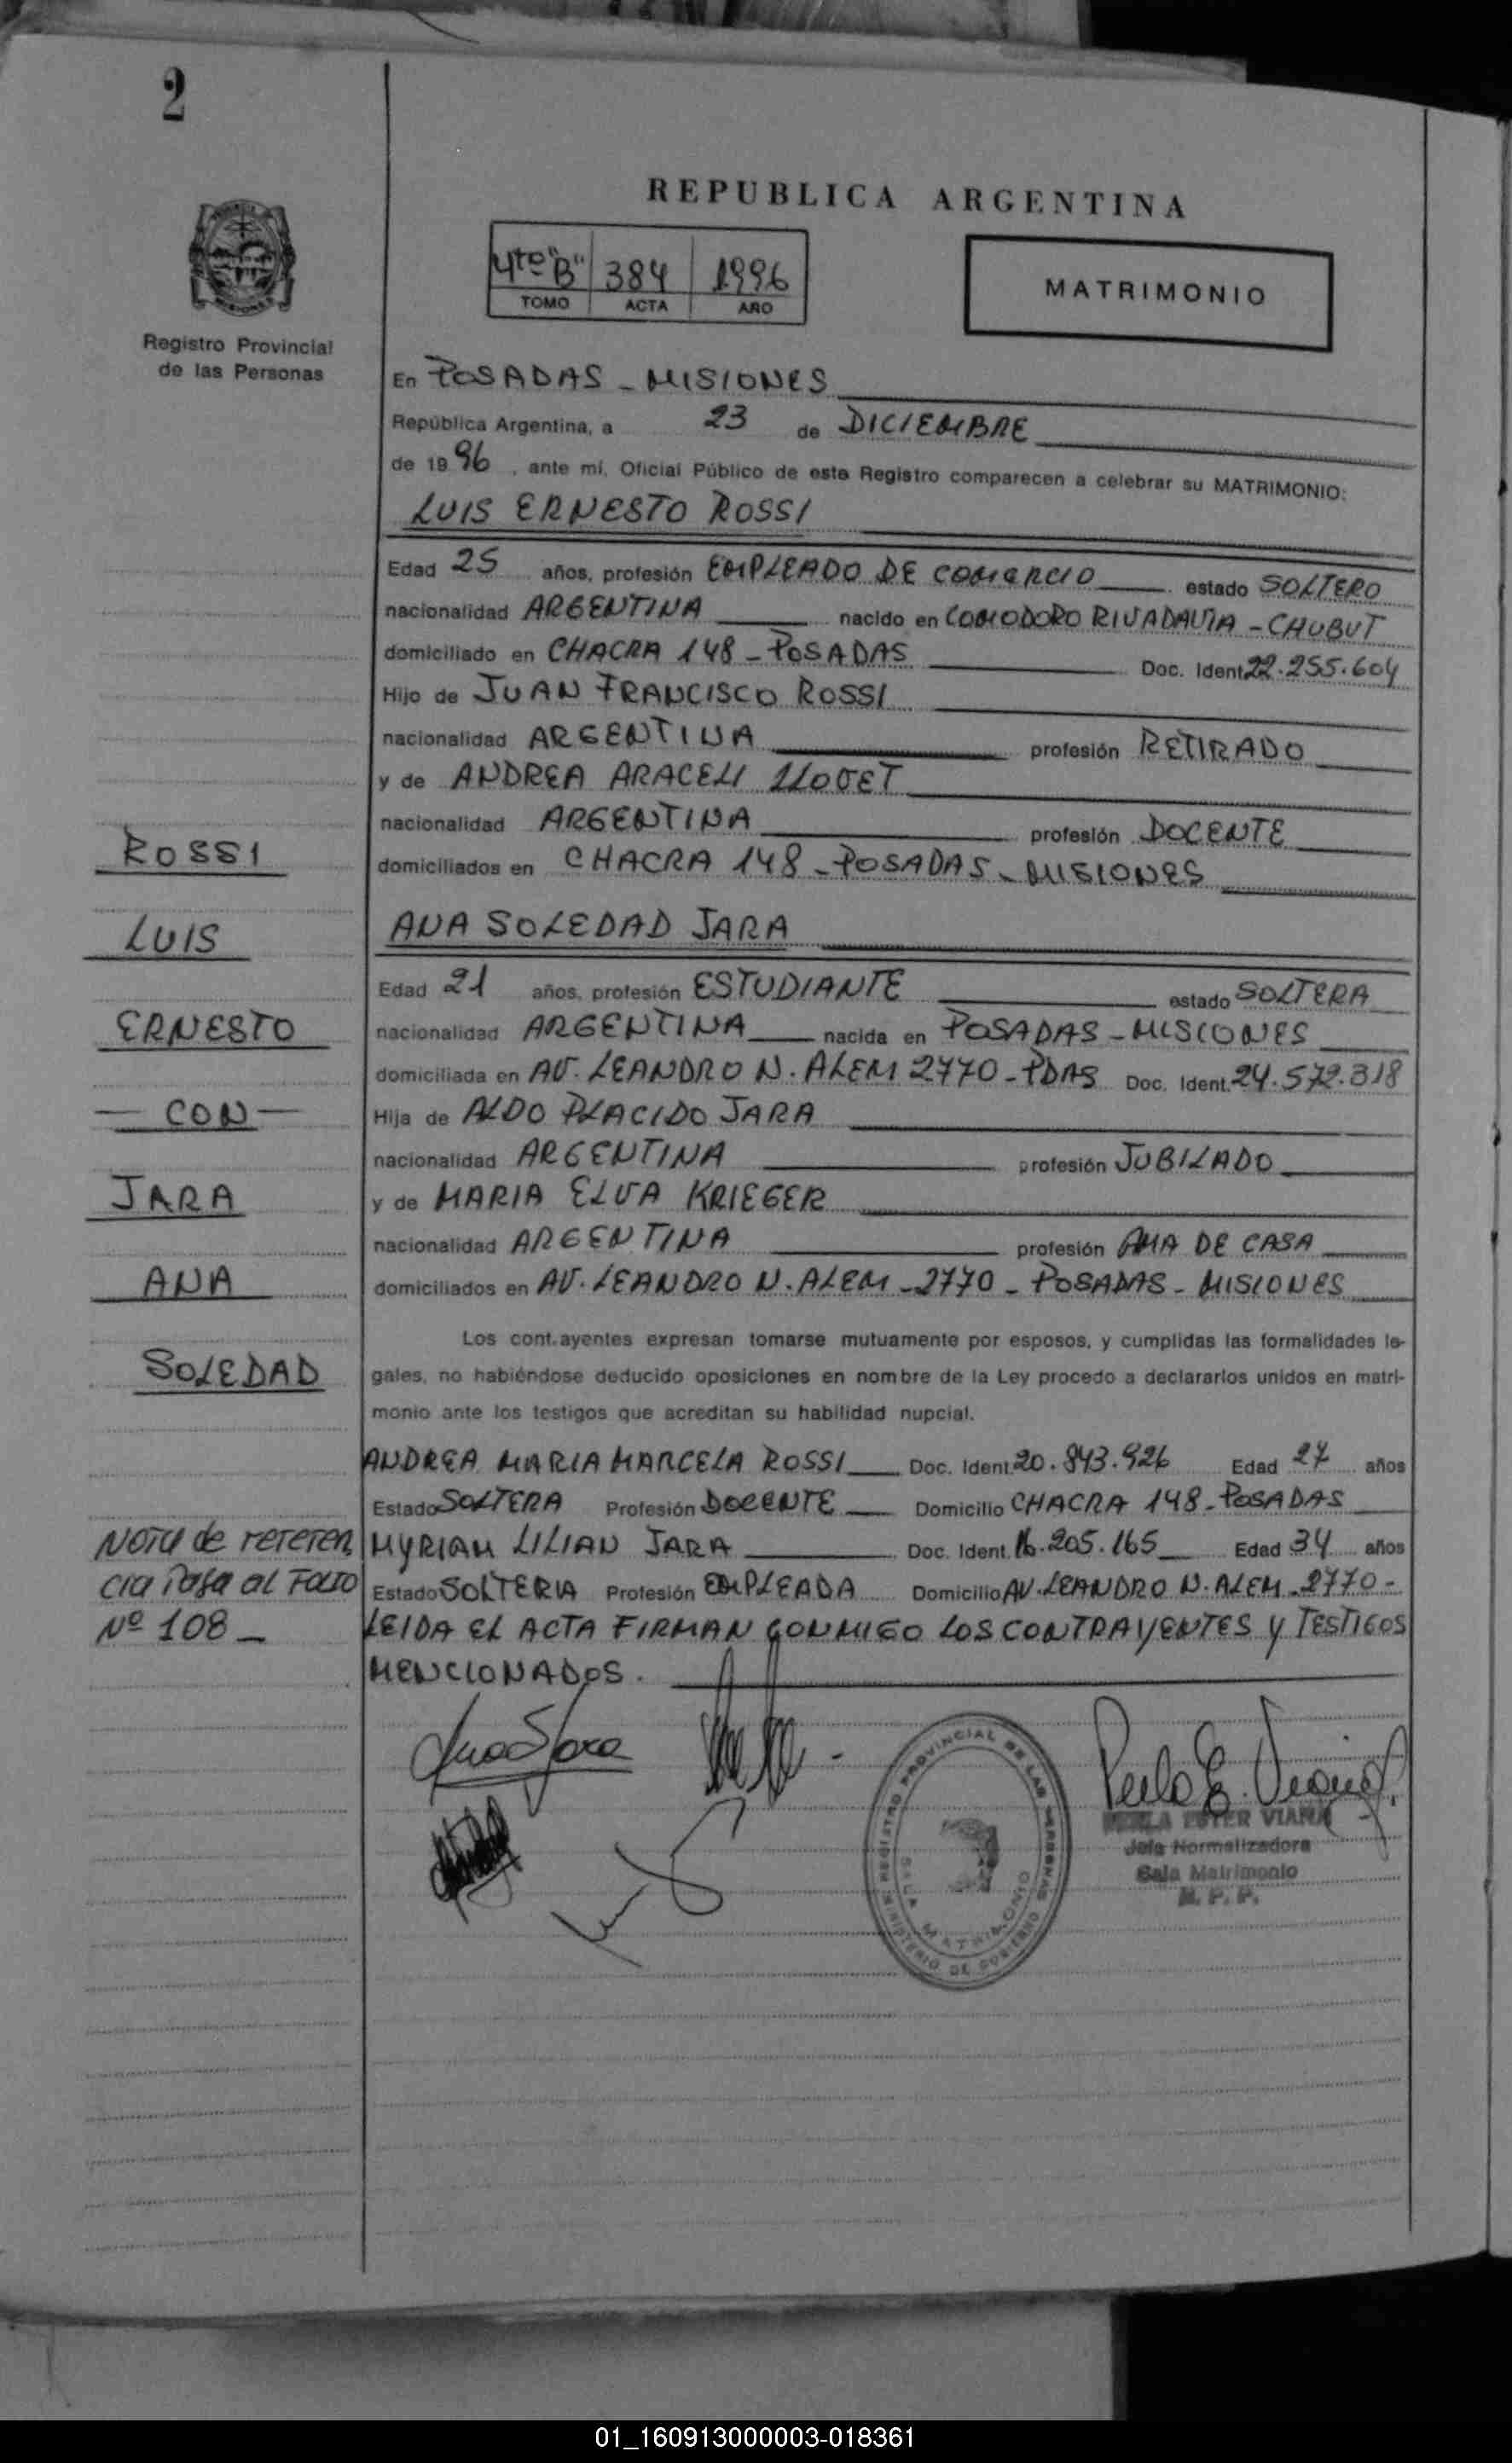 2
REPUBLICA ARGENTINA
4to "B" 384 1996
TOMO ACTA AÑO
MATRIMONIO
Registro Provincial
de las Personas
En POSADAS - MISIONES
República Argentina, a 23 de DICIEMBRE
de 1996, ante mí, Oficial Público de este Registro comparecen a celebrar su MATRIMONIO:
LUIS ERNESTO ROSSI
Edad 25 años, profesión EMPLEADO DE COMERCIO estado SOLTERO
nacionalidad ARGENTINA nacido en COMODORO RIVADAVIA - CHUBUT
domiciliado en CHACRA 148 - POSADAS Doc. Ident. 22.255.604
Hijo de JUAN FRANCISCO ROSSI
nacionalidad ARGENTINA profesión RETIRADO
y de ANDREA ARACELI LLOVET
nacionalidad ARGENTINA profesión DOCENTE
domiciliados en CHACRA 148 - POSADAS - MISIONES
ANA SOLEDAD JARA
Edad 21 años, profesión ESTUDIANTE estado SOLTERA
nacionalidad ARGENTINA nacida en POSADAS - MISIONES
domiciliada en AV. LEANDRO N. ALEM 2770 - PDAS Doc. Ident. 24.572.318
Hija de ALDO PLACIDO JARA
nacionalidad ARGENTINA profesión JUBILADO
y de MARIA ELVA KRIEGER
nacionalidad ARGENTINA profesión AMA DE CASA
domiciliados en AV. LEANDRO N. ALEM - 2770 - POSADAS - MISIONES
Los contrayentes expresan tomarse mutuamente por esposos, y cumplidas las formalidades le-
gales, no habiéndose deducido oposiciones en nombre de la Ley procedo a declararlos unidos en matri-
monio ante los testigos que acreditan su habilidad nupcial.
ANDREA MARIA MARCELA ROSSI Doc. Ident. 20.843.926 Edad 27 años
Estado SOLTERA Profesión DOCENTE Domicilio CHACRA 148 - POSADAS
MYRIAM LILIAN JARA Doc. Ident. 16.205.165 Edad 34 años
Estado SOLTERIA Profesión EMPLEADA Domicilio AV. LEANDRO N. ALEM - 2770 -
LEIDA EL ACTA FIRMAN CONMIGO LOS CONTRAYENTES Y TESTIGOS
MENCIONADOS.
ROSSI
LUIS
ERNESTO
- CON -
JARA
ANA
SOLEDAD
Nota de referen
cia Pasa al Folio
Nº 108 -
Ana S Jara
Perla E. Viana
PERLA ESTER VIANA
Jefa Normalizadora
Sala Matrimonio
R. P. P.
REGISTRO PROVINCIAL DE LAS PERSONAS
MINISTERIO DE GOBIERNO
SALA MATRIMONIO
01_160913000003-018361